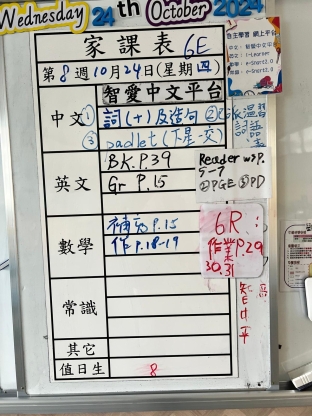 Wednesday 24th October 2024
家課表 6E
第8週10月24日(星期四)
自主學習 網上平台
智愛中文平台
中文 ① 詞(十)及造句 ② 溫習
詞語
③ padlet (下星交)
英文 BK.P.39
Gr P.15
Reader w.s P.
5-7
② PGE ③ PD
數學 補充 P.15
作 P.18-19
6R:
作業P.29
30,31
常識
其它
值日生 8